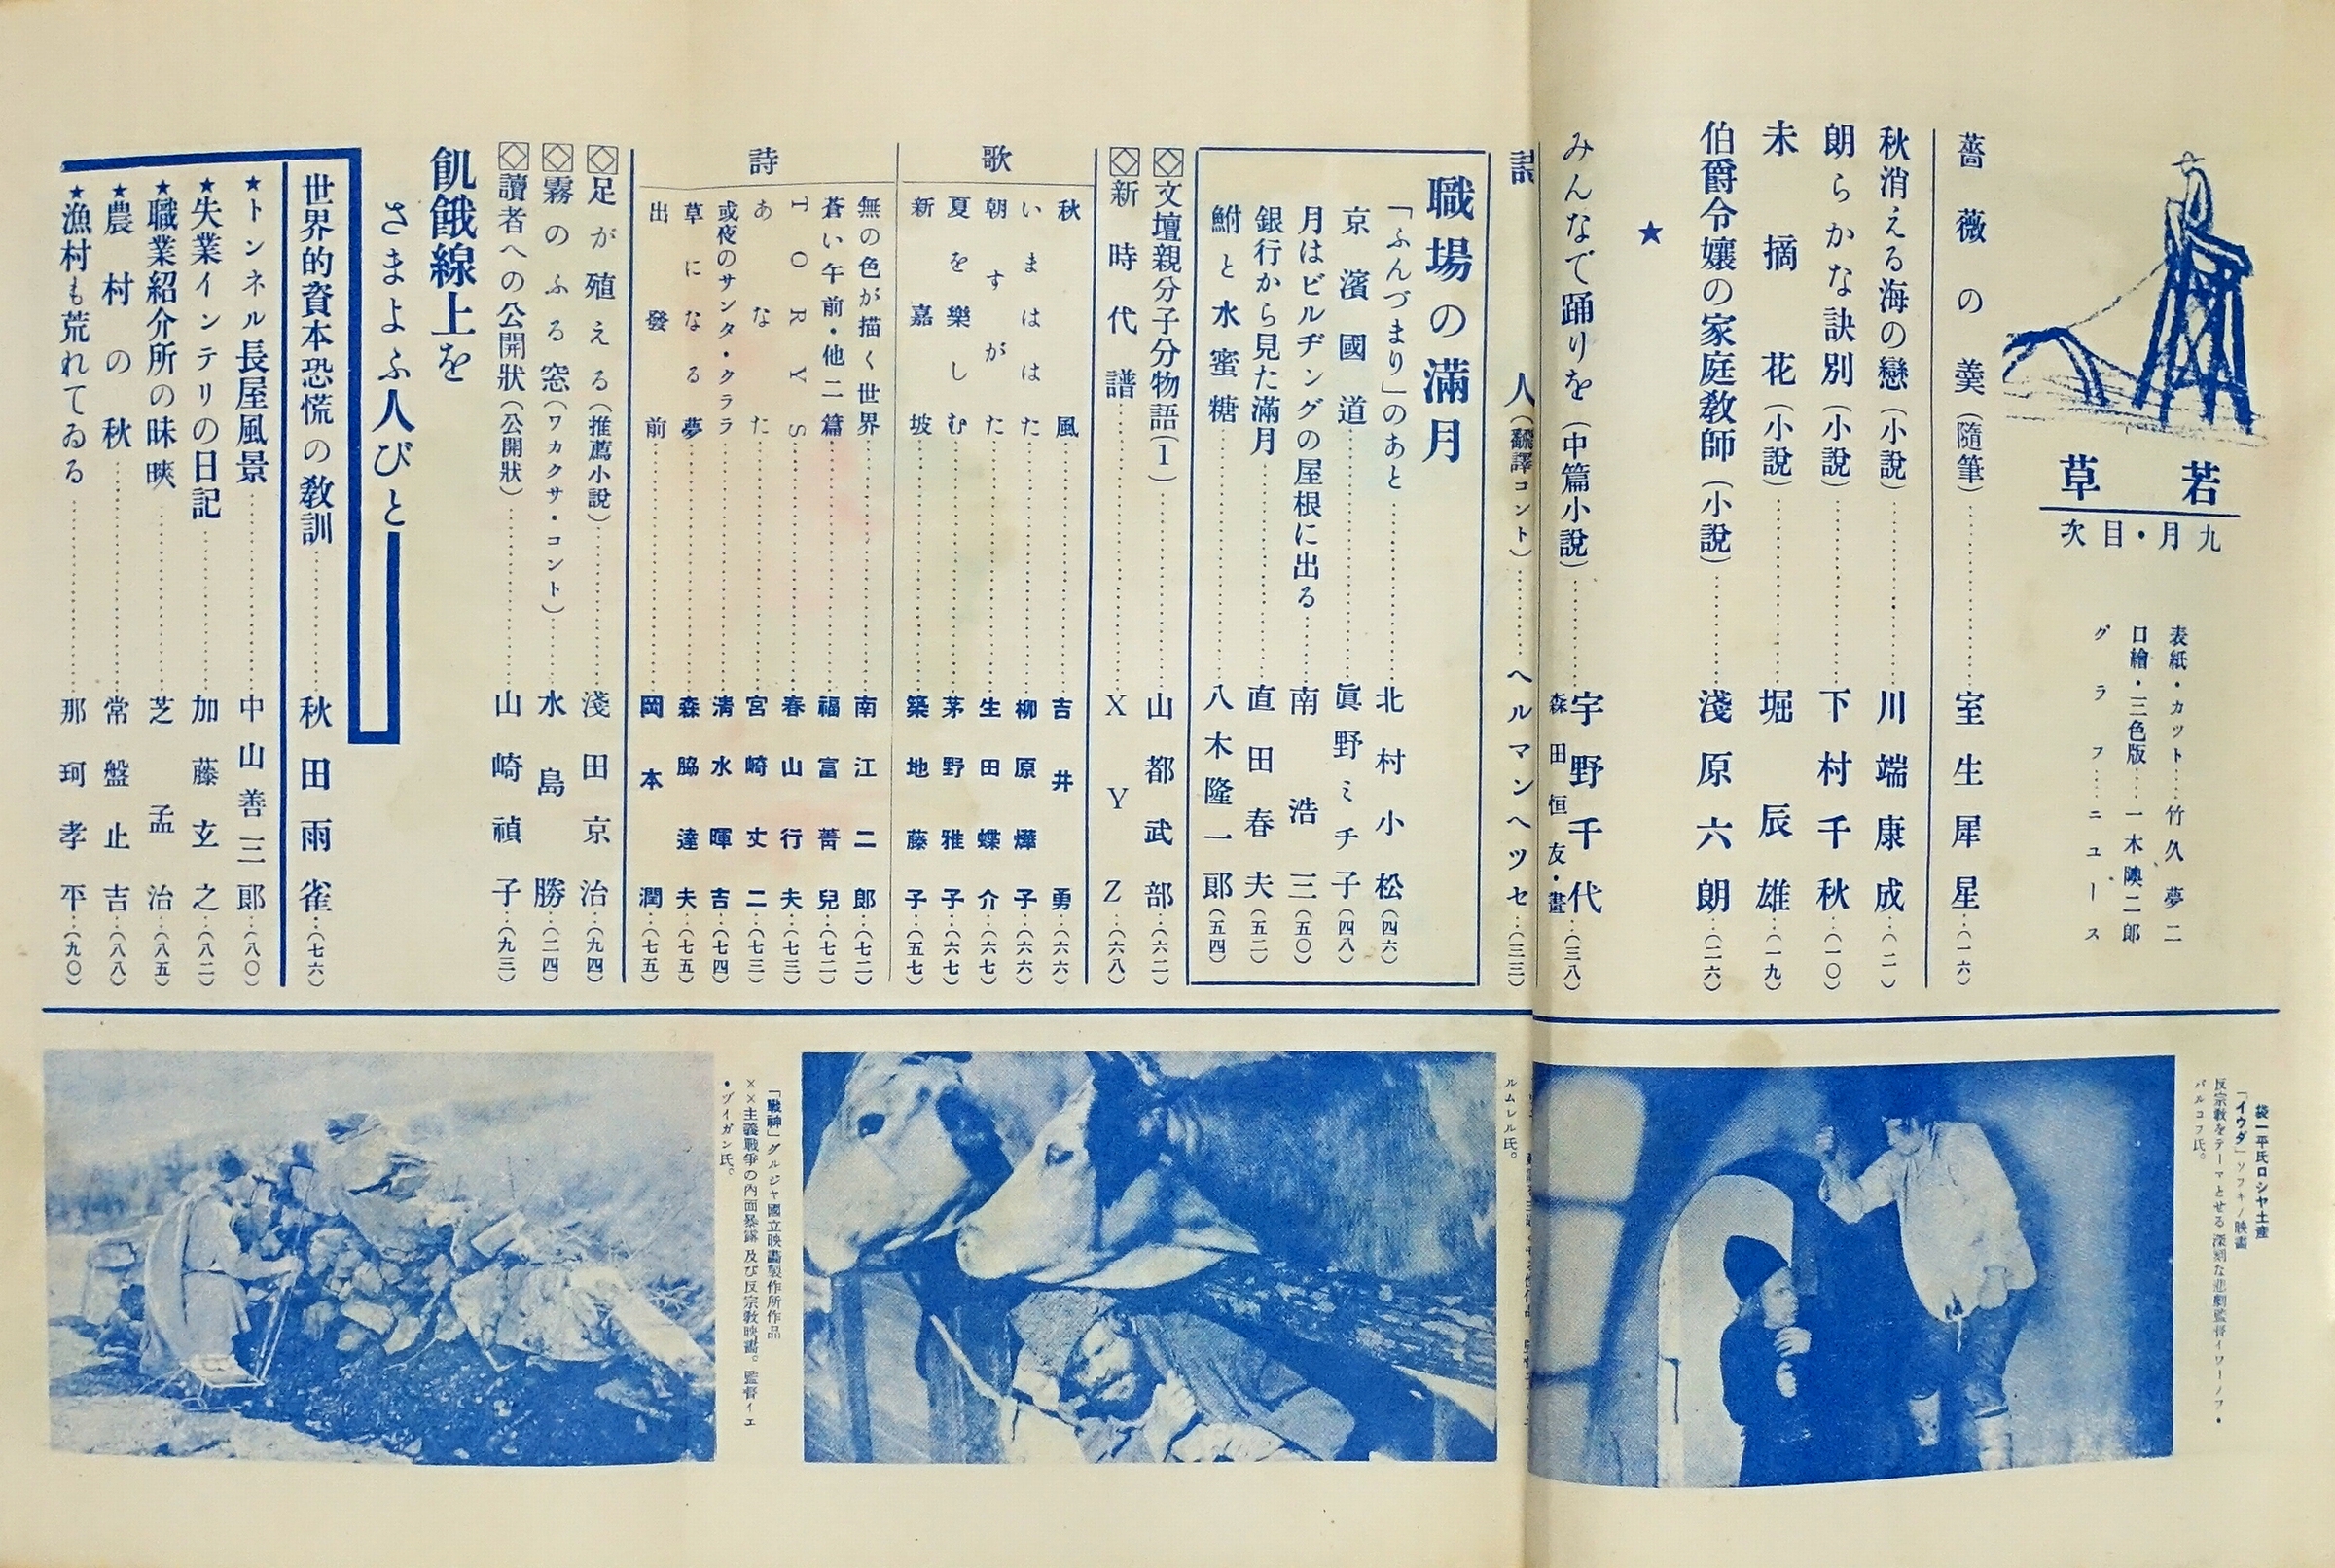 若草
九月・目次
表紙・カット……竹久夢二
口繪・三色版……一木陳二郎
グラフ……ニュース
薔薇の羹(隨筆)……室生犀星…(一六)
秋消える海の戀(小說)……川端康成…(二)
朗らかな訣別(小說)……下村千秋…(一〇)
未摘花(小說)……堀辰雄…(一九)
伯爵令孃の家庭敎師(小說)……淺原六朗…(二六)
★
みんなで踊りを(中篇小說)……宇野千代…(三八)
森田恒友・畫
人(飜譯コント)……ヘルマンヘツセ…(三三)
職場の滿月
「ふんづまり」のあと……北村小松(四六)
京濱國道……眞野ミチ子(四八)
月はビルヂングの屋根に出る……南浩三(五〇)
銀行から見た滿月……直田春夫(五二)
鮒と水蜜糖……八木隆一郞(五四)
◇文壇親分子分物語(1)……山都武部…(六二)
◇新時代譜……XYZ…(六八)
歌
秋風……吉井勇…(六六)
いまははた……柳原燁子…(六六)
朝すがた……生田蝶介…(六七)
夏を樂しむ……茅野雅子…(六七)
新嘉坡……築地藤子…(五七)
詩
無の色が描く世界……南江二郎…(七二)
蒼い午前・他二篇……福富菁兒…(七二)
TORYS……春山行夫…(七三)
あなた……宮崎丈二…(七三)
或夜のサンタ・クララ……淸水暉吉…(七四)
草になる夢……森脇達夫…(七五)
出發前……岡本潤…(七五)
◇足が殖える(推薦小說)……淺田京治…(九四)
◇霧のふる窓(ワカクサ・コント)……水島勝…(二四)
◇讀者への公開狀(公開狀)……山崎禎子…(九三)
飢餓線上を
さまよふ人びと
世界的資本恐慌の敎訓……秋田雨雀…(七六)
★トンネル長屋風景……中山善三郎…(八〇)
★失業インテリの日記……加藤玄之…(八二)
★職業紹介所の昧爽……芝孟治…(八五)
★農村の秋……常盤止吉…(八八)
★漁村も荒れてゐる……那珂孝平…(九〇)
袋一平氏ロシヤ土產
「イウダ」ソフキノ映畫
反宗敎をテーマとせる深刻な悲劇監督イワーノフ・
バルコフ氏。
ルムレル氏。
「戰神」グルジヤ國立映畫製作所作品
××主義戰爭の內面暴露及び反宗敎映畫。監督イエ
・ヅイガン氏。